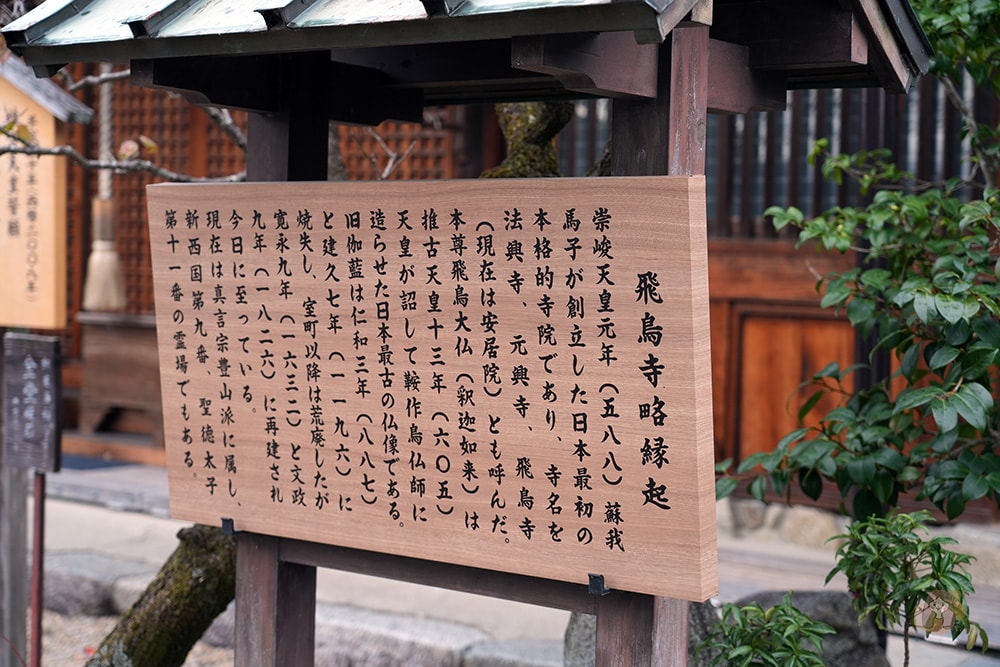 飛鳥寺略縁起
崇峻天皇元年（五八八）蘇我
馬子が創立した日本最初の
本格的寺院であり、寺名を
法興寺、元興寺、飛鳥寺
（現在は安居院）とも呼んだ。
本尊飛鳥大仏（釈迦如来）は
推古天皇十三年（六〇五）
天皇が詔して鞍作鳥仏師に
造らせた日本最古の仏像である。
旧伽藍は仁和三年（八八七）
と建久七年（一一九六）に
焼失し、室町以降は荒廃したが
寛永九年（一六三二）と文政
九年（一八二六）に再建され
今日に至っている。
現在は真言宗豊山派に属し、
新西国第九番、聖徳太子
第十一番の霊場でもある。